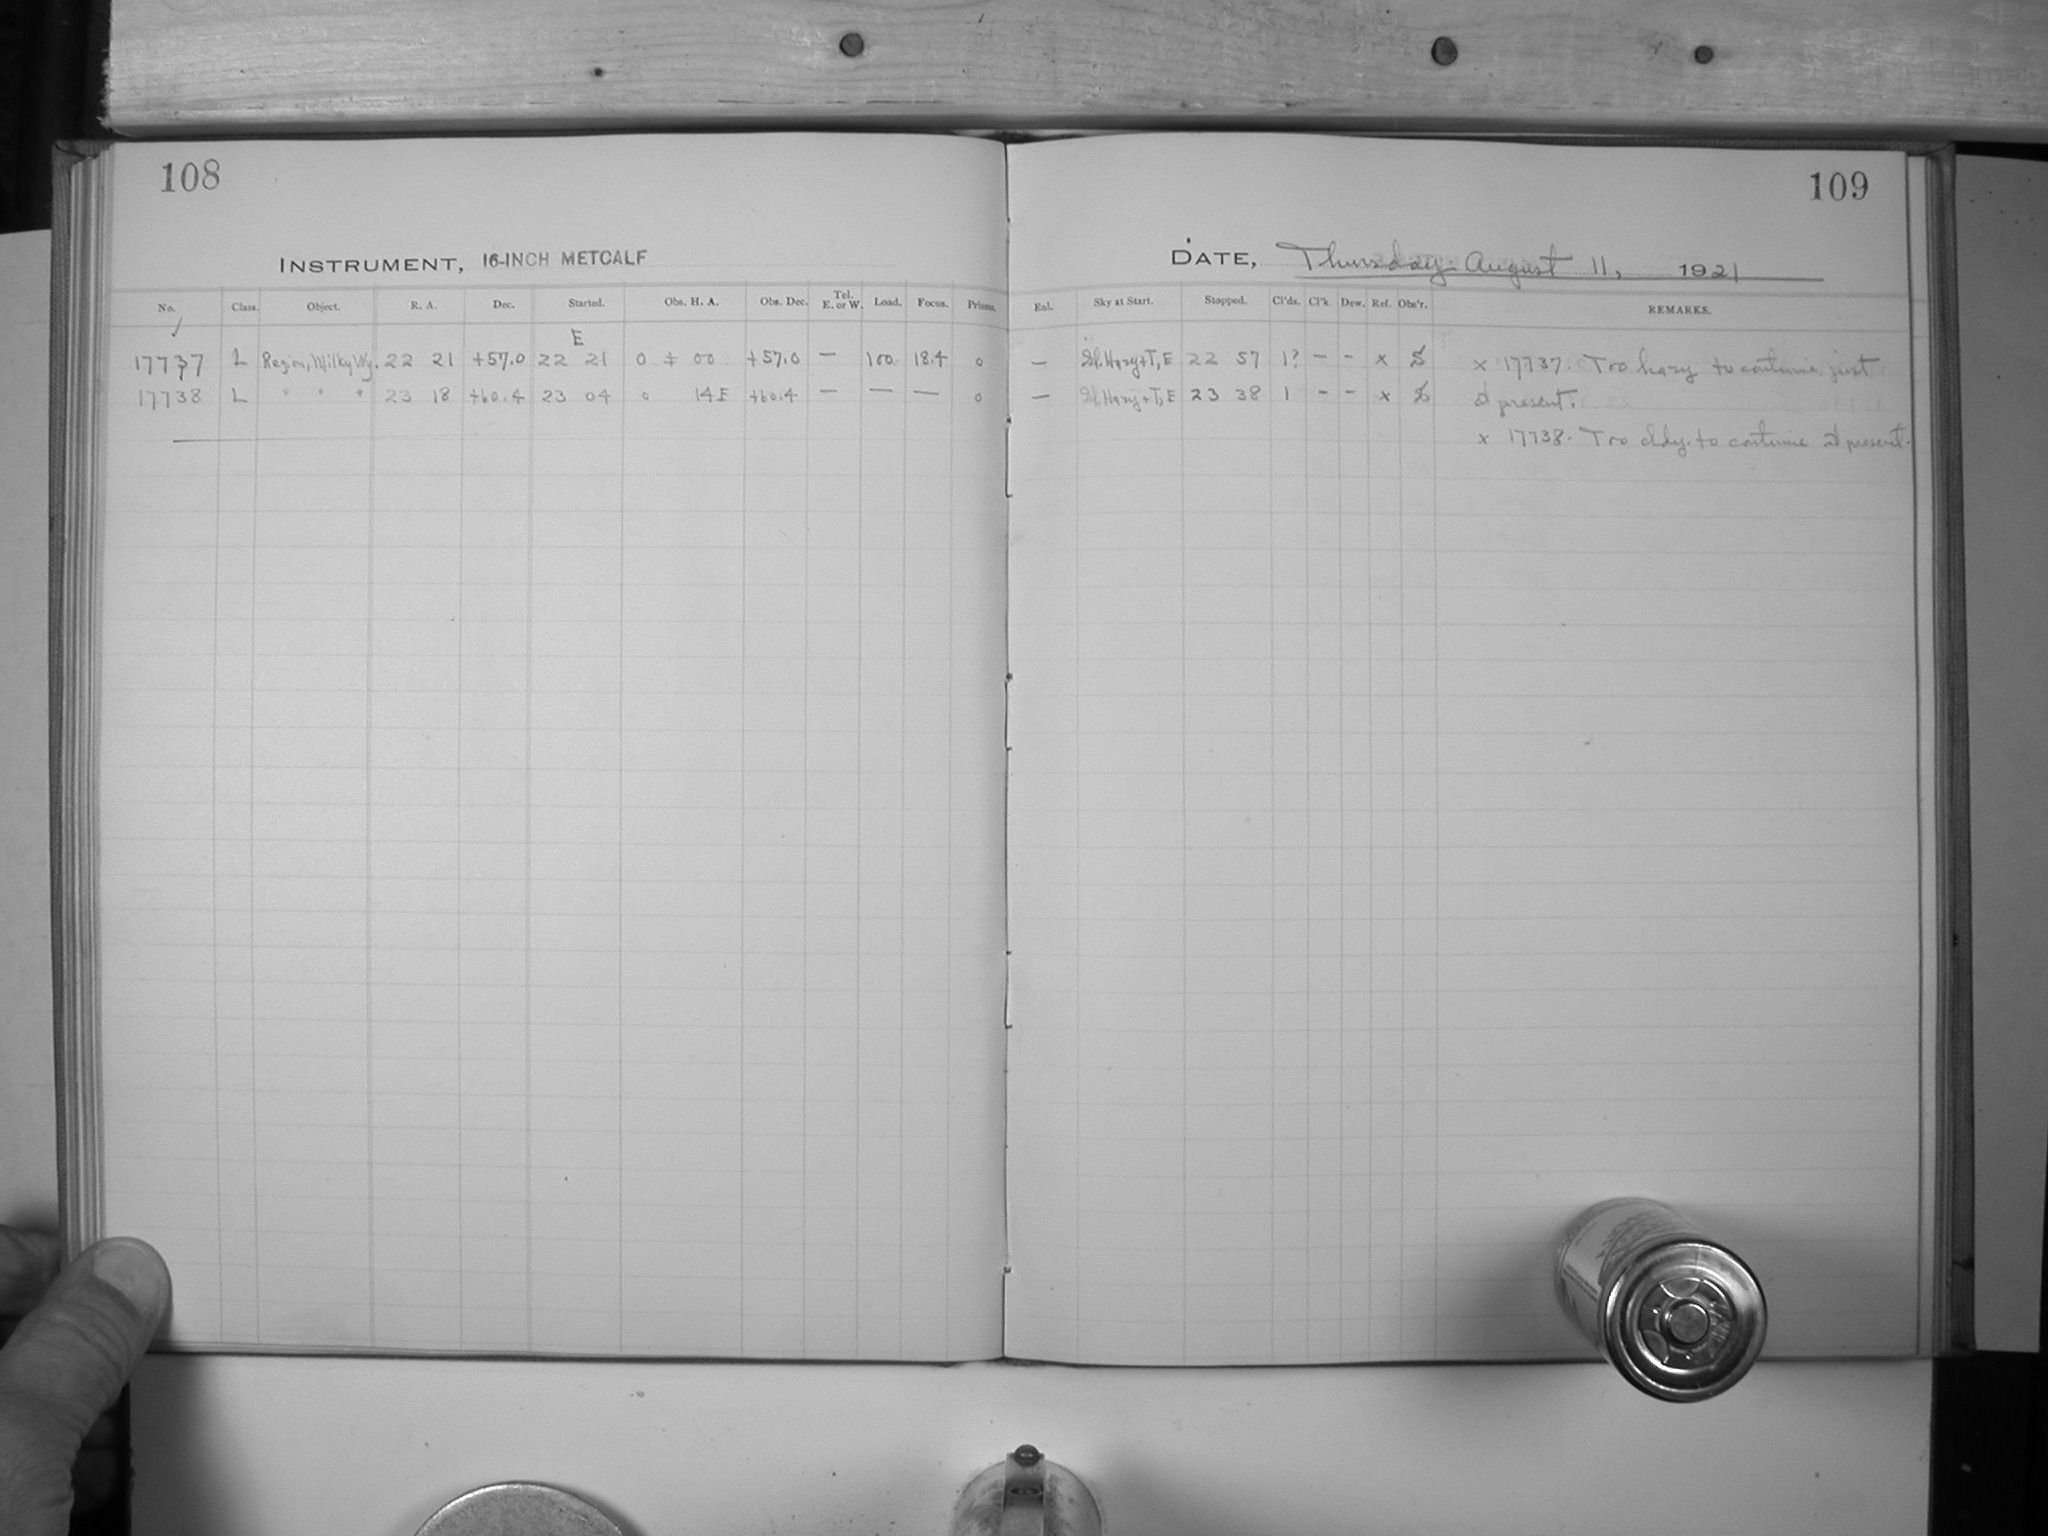 108
109
INSTRUMENT, 16-INCH METCALF
DATE, Thursday August 11, 1921
No. Class. Object. R. A. Dec. Started. Obs. H. A. Obs. Dec. Tel. E. or W. Load. Focus. Prisms. Enl. Sky at Start. Stopped. Cl'ds. Cl'k. Dew. Ref. Obs'r. REMARKS.
E
17737 L Region, Milky Wy. 22 21 +57.0 22 21 0 ± 00 +57.0 — 100. 18.4 0 — Sl. Hazy+T, E 22 57 1? - - x S x 17737. Too hazy to continue just
17738 L " " " 23 18 +60.4 23 04 0 14 E +60.4 — — — 0 — Sl. Hazy+T, E 23 38 1 - - x S at present.
x 17738. Too cldy. to continue at present.